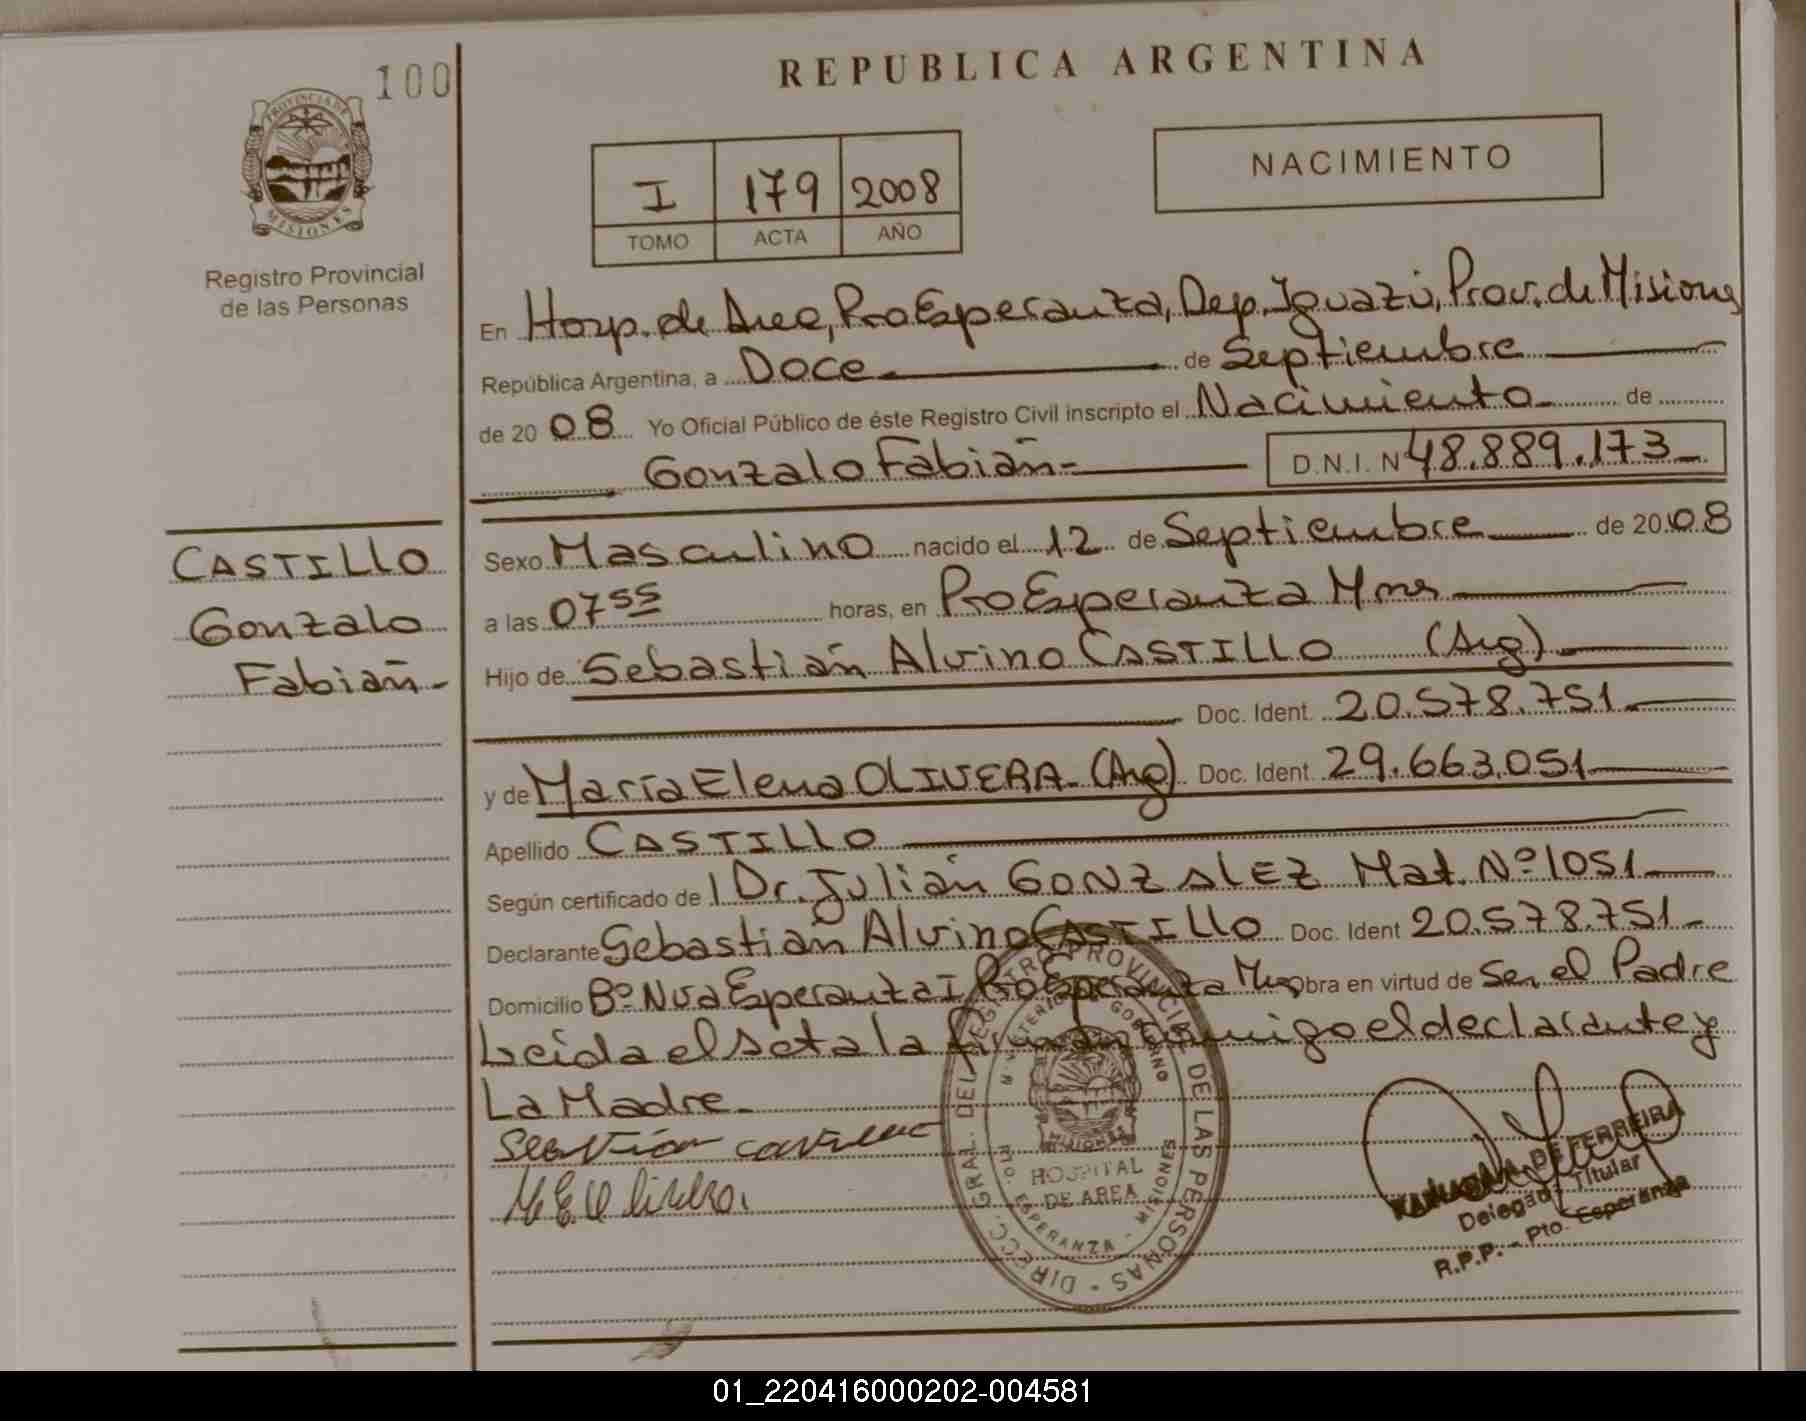 100
REPUBLICA ARGENTINA
PROVINCIA DE
MISIONES
Registro Provincial
de las Personas
I 179 2008
TOMO ACTA AÑO
NACIMIENTO
En Hosp. de Area, Pto Esperanza, Dep. Iguazú, Prov. de Misiones
República Argentina, a Doce de Septiembre
de 20 08 Yo Oficial Público de éste Registro Civil inscripto el Nacimiento de
Gonzalo Fabián D.N.I. N 48.889.173
CASTILLO
Gonzalo
Fabián
Sexo Masculino nacido el 12 de Septiembre de 20 08
a las 07 55 horas, en Pto Esperanza Mnes
Hijo de Sebastián Alvino CASTILLO (Arg)
Doc. Ident. 20.578.751
y de María Elena OLIVERA (Arg) Doc. Ident. 29.663.051
Apellido CASTILLO
Según certificado de Dr. Julián GONZALEZ Mat. Nº 1051
Declarante Sebastián Alvino CASTILLO Doc. Ident 20.578.751
Domicilio Bº Nva Esperanza I Pto Esperanza Obra en virtud de Ser el Padre
Leida el acta la firman conmigo el declarante y
La Madre.
Sebastián Castillo
M E Olivera.
DIRECC. GRAL. DEL REGISTRO PROVINCIAL DE LAS PERSONAS
MINISTERIO GOBIERNO
MISIONES
HOSPITAL
DE AREA
ESPERANZA - MISIONES
DE FERREIRA
Delegada Titular
R.P.P. - Pto. Esperanza
01_220416000202-004581